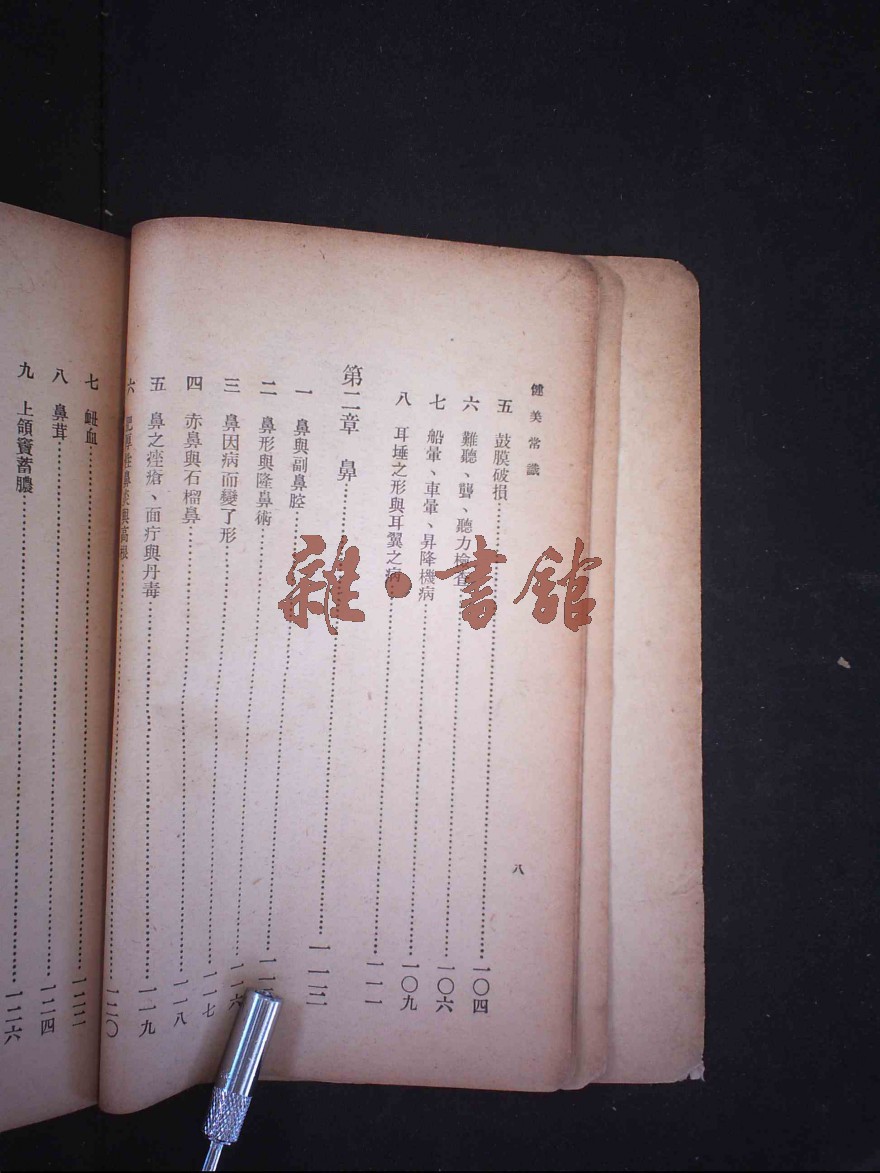 健美常識
八
五 鼓膜破損……一〇四
六 難聽、聾、聽力檢查……一〇六
七 船暈、車暈、昇降機病……一〇九
八 耳埵之形與耳翼之病……一一一
第二章 鼻……一一三
一 鼻與副鼻腔……一一
二 鼻形與隆鼻術……一一六
三 鼻因病而變了形……一一七
四 赤鼻與石榴鼻……一一八
五 鼻之痤瘡、面疔與丹毒……一一九
六 肥厚性鼻炎與高根……一二〇
七 衄血……一二二
八 鼻茸……一二四
九 上領竇蓄膿……一二六
雜·書館